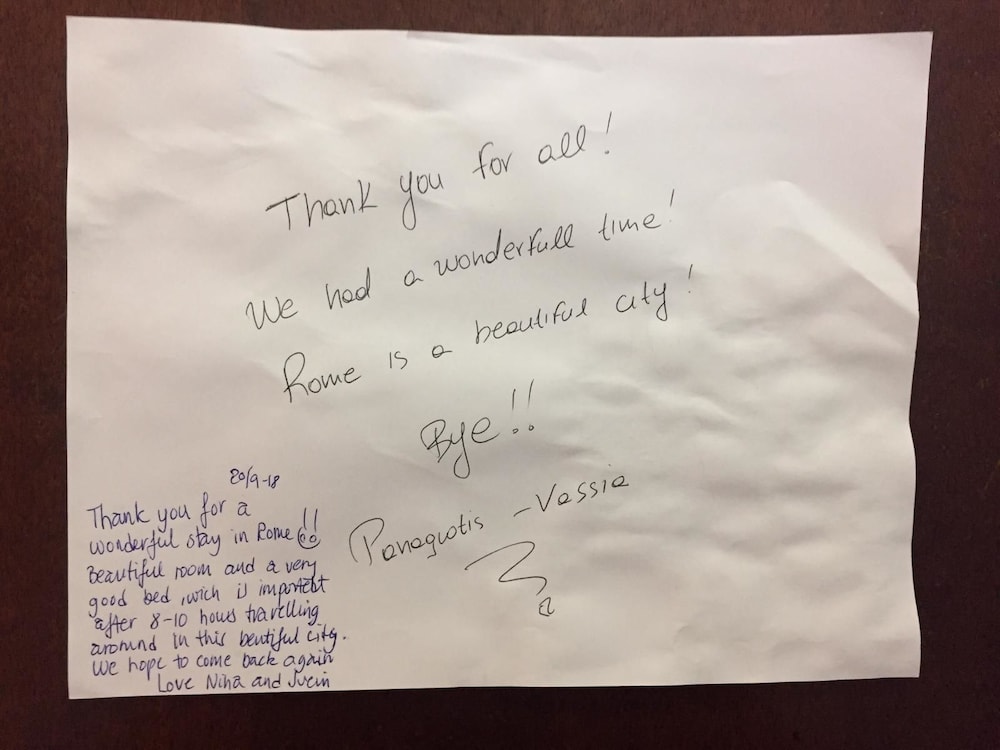 Thank you for all!
We had a wonderfull time!
Rome is a beautiful city!
Bye!!
Panagiotis - Vassia
20/9-18
Thank you for a
wonderful stay in Rome !!
Beautiful room and a very
good bed, wich is important
after 8-10 hours travelling
around in this beutiful city.
We hope to come back again
Love Nina and Svein